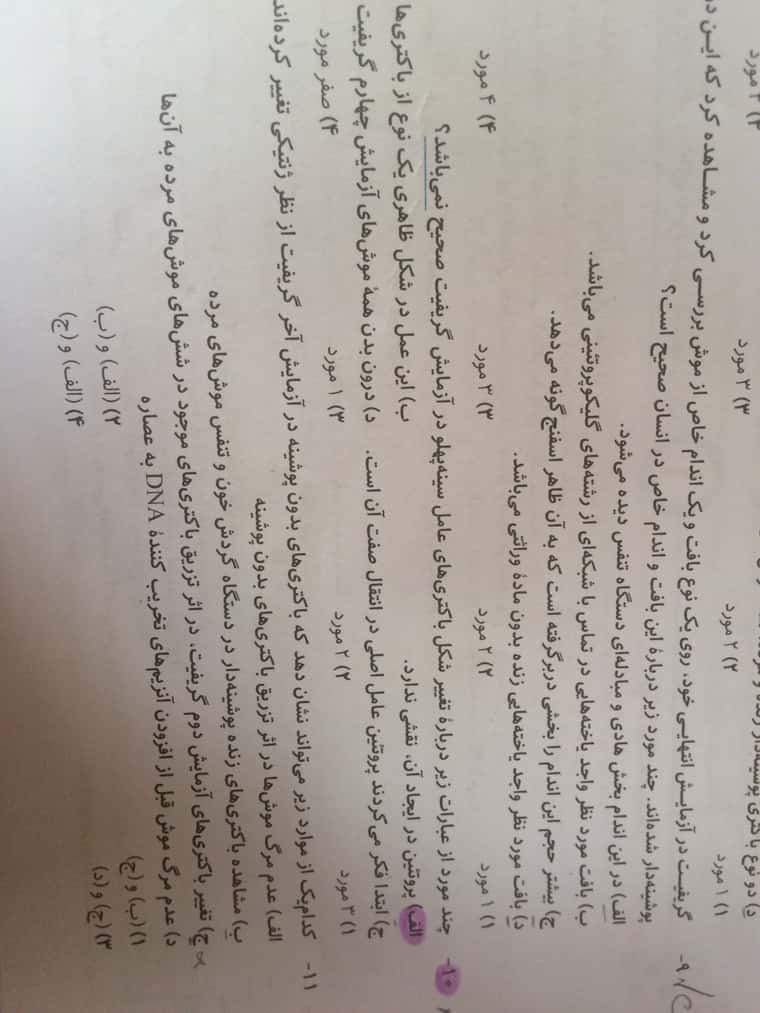 د) دو نوع باکتری پوشینه‌دار زنده و
۱) ۱ مورد ۲) ۲ مورد ۳) ۳ مورد ۴) ۴ مورد
۹- گریفیت در آزمایش انتهایی خود، روی یک نوع بافت و یک اندام خاص از موش بررسی کرد و مشاهده کرد که این دو
پوشینه‌دار شده‌اند. چند مورد زیر دربارهٔ این بافت و اندام خاص در انسان صحیح است؟
الف) در این اندام بخش هادی و مبادله‌ای دستگاه تنفس دیده می‌شود.
ب) بافت مورد نظر واجد یاخته‌هایی در تماس با شبکه‌ای از رشته‌های گلیکوپروتئینی می‌باشد.
ج) بیشتر حجم این اندام را بخشی دربرگرفته است که به آن ظاهر اسفنج‌گونه می‌دهد.
د) بافت مورد نظر واجد یاخته‌هایی زنده بدون مادهٔ وراثتی می‌باشد.
۱) ۱ مورد ۲) ۲ مورد ۳) ۳ مورد ۴) ۴ مورد
۱۰- چند مورد از عبارات زیر دربارهٔ تغییر شکل باکتری‌های عامل سینه‌پهلو در آزمایش گریفیت صحیح نمی‌باشد؟
الف) پروتئین در ایجاد آن، نقشی ندارد. ب) این عمل در شکل ظاهری یک نوع از باکتری‌ها
ج) ابتدا فکر می‌کردند پروتئین عامل اصلی در انتقال صفت آن است. د) درون بدن همهٔ موش‌های آزمایش چهارم گریفیت
۱) ۳ مورد ۲) ۲ مورد ۳) ۱ مورد ۴) صفر مورد
۱۱- کدام‌یک از موارد زیر می‌تواند نشان دهد که باکتری‌های بدون پوشینه در آزمایش آخر گریفیت از نظر ژنتیکی تغییر کرده‌اند
الف) عدم مرگ موش‌ها در اثر تزریق باکتری‌های بدون پوشینه
ب) مشاهده باکتری‌های زنده پوشینه‌دار در دستگاه گردش خون و تنفس موش‌های مرده
ج) تغییر باکتری‌های آزمایش دوم گریفیت، در اثر تزریق باکتری‌های موجود در شش‌های موش‌های مرده به آن‌ها
د) عدم مرگ موش قبل از افزودن آنزیم‌های تخریب کنندهٔ DNA به عصاره
۱) (ب) و (ج) ۲) (الف) و (ب)
۳) (ج) و (د) ۴) (الف) و (ج)